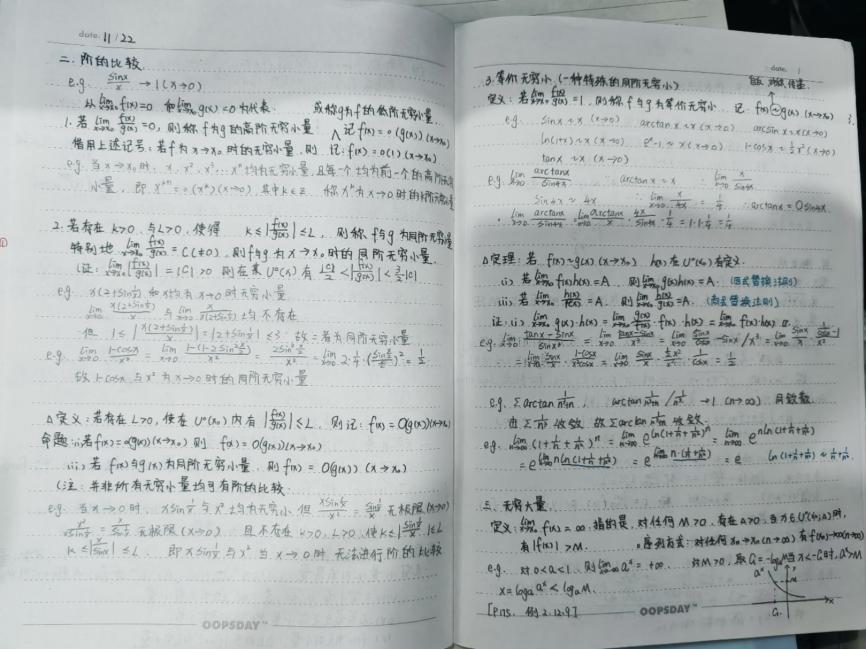 date: 11/22
二. 阶的比较.
e.g. sinx/x → 1 (x→0)
从 lim x→x₀ f(x)=0 和 lim x→x₀ g(x)=0 为代表. 或称g为f的低阶无穷小量.
1. 若 lim x→x₀ f(x)/g(x) =0, 则称f为g的高阶无穷小量 ∧ 记f(x)=o(g(x)) (x→x₀)
借用上述记号: 若f为x→x₀时的无穷小量, 则记: f(x)=o(1) (x→x₀)
e.g. 当x→x₀时, x, x², x³…xⁿ均为无穷小量, 且每一个均为前一个的高阶无穷
小量, 即 xᵏ⁺¹=o(xᵏ)(x→0), 其中k∈Z. 称xᵏ为x→0时的k阶无穷小量
2. 若存在K>0, 与L>0, 使得 K≤|f(x)/g(x)|≤L, 则称f与g为同阶无穷小量
特别地 lim x→x₀ f(x)/g(x) = C(≠0), 则f与g为x→x₀时的同阶无穷小量.
(证: lim x→x₀ |f(x)/g(x)| = |C|>0 则在某U°(x₀)有 |C|/2 < |f(x)/g(x)| < 3/2|C|
e.g. x(2+sin1/x) 和x均为x→0时无穷小量
lim x→0 x(2+sin1/x)/x 与 lim x→0 x/x(2+sin1/x) 均不存在
但 1≤|x(2+sin1/x)/x|=|2+sin1/x|≤3. 故二者为同阶无穷小量
e.g. lim x→0 1-cosx/x² = lim x→0 1-(1-2sin²x/2)/x² = 2sin²x/2/x² = lim x→0 2·1/4·(sinx/2/x/2)² = 1/2
故 1-cosx与x²为x→0时的同阶无穷小量
△定义: 若存在L>0, 使在U°(x₀)内有|f(x)/g(x)|≤L, 则记: f(x)=O(g(x))(x→x₀)
命题: (i) 若f(x)=o(g(x))(x→x₀) 则 f(x)=O(g(x))(x→x₀)
(ii) 若f(x)与g(x)为同阶无穷小量. 则f(x)=O(g(x)) (x→x₀)
(注: 并非所有无穷小量均可有阶的比较.
e.g. 当x→0时, xsin1/x与x²均为无穷小, 但 xsin1/x/x² = sin1/x/x 无极限(x→0)
x²/xsin1/x = x/sin1/x 无极限(x→0) 且不存在K>0, L>0, 使K≤|sin1/x/x|≤L或
K≤|x/sin1/x|≤L. 即xsin1/x与x²当x→0时, 无法进行阶的比较
OOPSDAY™
date.
3. 等价无穷小.(一种特殊的同阶无穷小)
定义: 若 lim x→x₀ f(x)/g(x) =1, 则称f与g为等价无穷小. 记: f(x)~g(x) (x→x₀)
e.g. sinx~x (x→0) arctanx~x (x→0) arcsinx~x (x→0)
ln(1+x)~x (x→0) eˣ-1~x (x→0) 1-cosx~1/2x² (x→0)
tanx~x (x→0)
e.g. lim x→0 arctanx/sin4x arctanx~x ∴ lim x→0 x/sin4x
sin4x~4x ∴ lim x→0 x/4x = 1/4 ∴ arctanx=Osin4x.
lim x→0 arctanx/sin4x = lim x→0 arctanx/x · 4x/sin4x · 1/4 = 1·1·1/4 = 1/4
△定理: 若 f(x)~g(x) (x→x₀) h(x)在U°(x₀)有定义.
(i) 若 lim x→x₀ f(x)h(x)=A, 则 lim x→x₀ g(x)h(x)=A. (因式替换法则)
(ii) 若 lim x→x₀ h(x)/f(x)=A. 则 lim x→x₀ h(x)/g(x)=A. (商式替换法则)
证: (i) lim x→x₀ g(x)·h(x)= lim x→x₀ g(x)/f(x)·f(x)·h(x)= lim x→x₀ f(x)·h(x)
e.g. lim x→0 tanx-sinx/sinx³ = lim x→0 tanx-sinx/x³ = lim x→0 sinx/cosx -sinx/x³
= lim x→0 sinx/x · 1-cosx/x²cosx = lim x→0 sinx/x · 1/2x²/x² · 1/cosx = 1/2
三. 无穷大量
定义: lim x→x₀ f(x)=∞. 指的是, 对任何M>0, 存在△>0, 当x∈U°(x₀;△)时,
有|f(x)|>M.
e.g. 对0<a<1. 则 lim x→-∞ aˣ=+∞. 对M>0, 取G=-logₐM当x<-G时, aˣ>M
x=logₐaˣ<logₐM.
[P.115. 例2.12.9]
OOPSDAY™